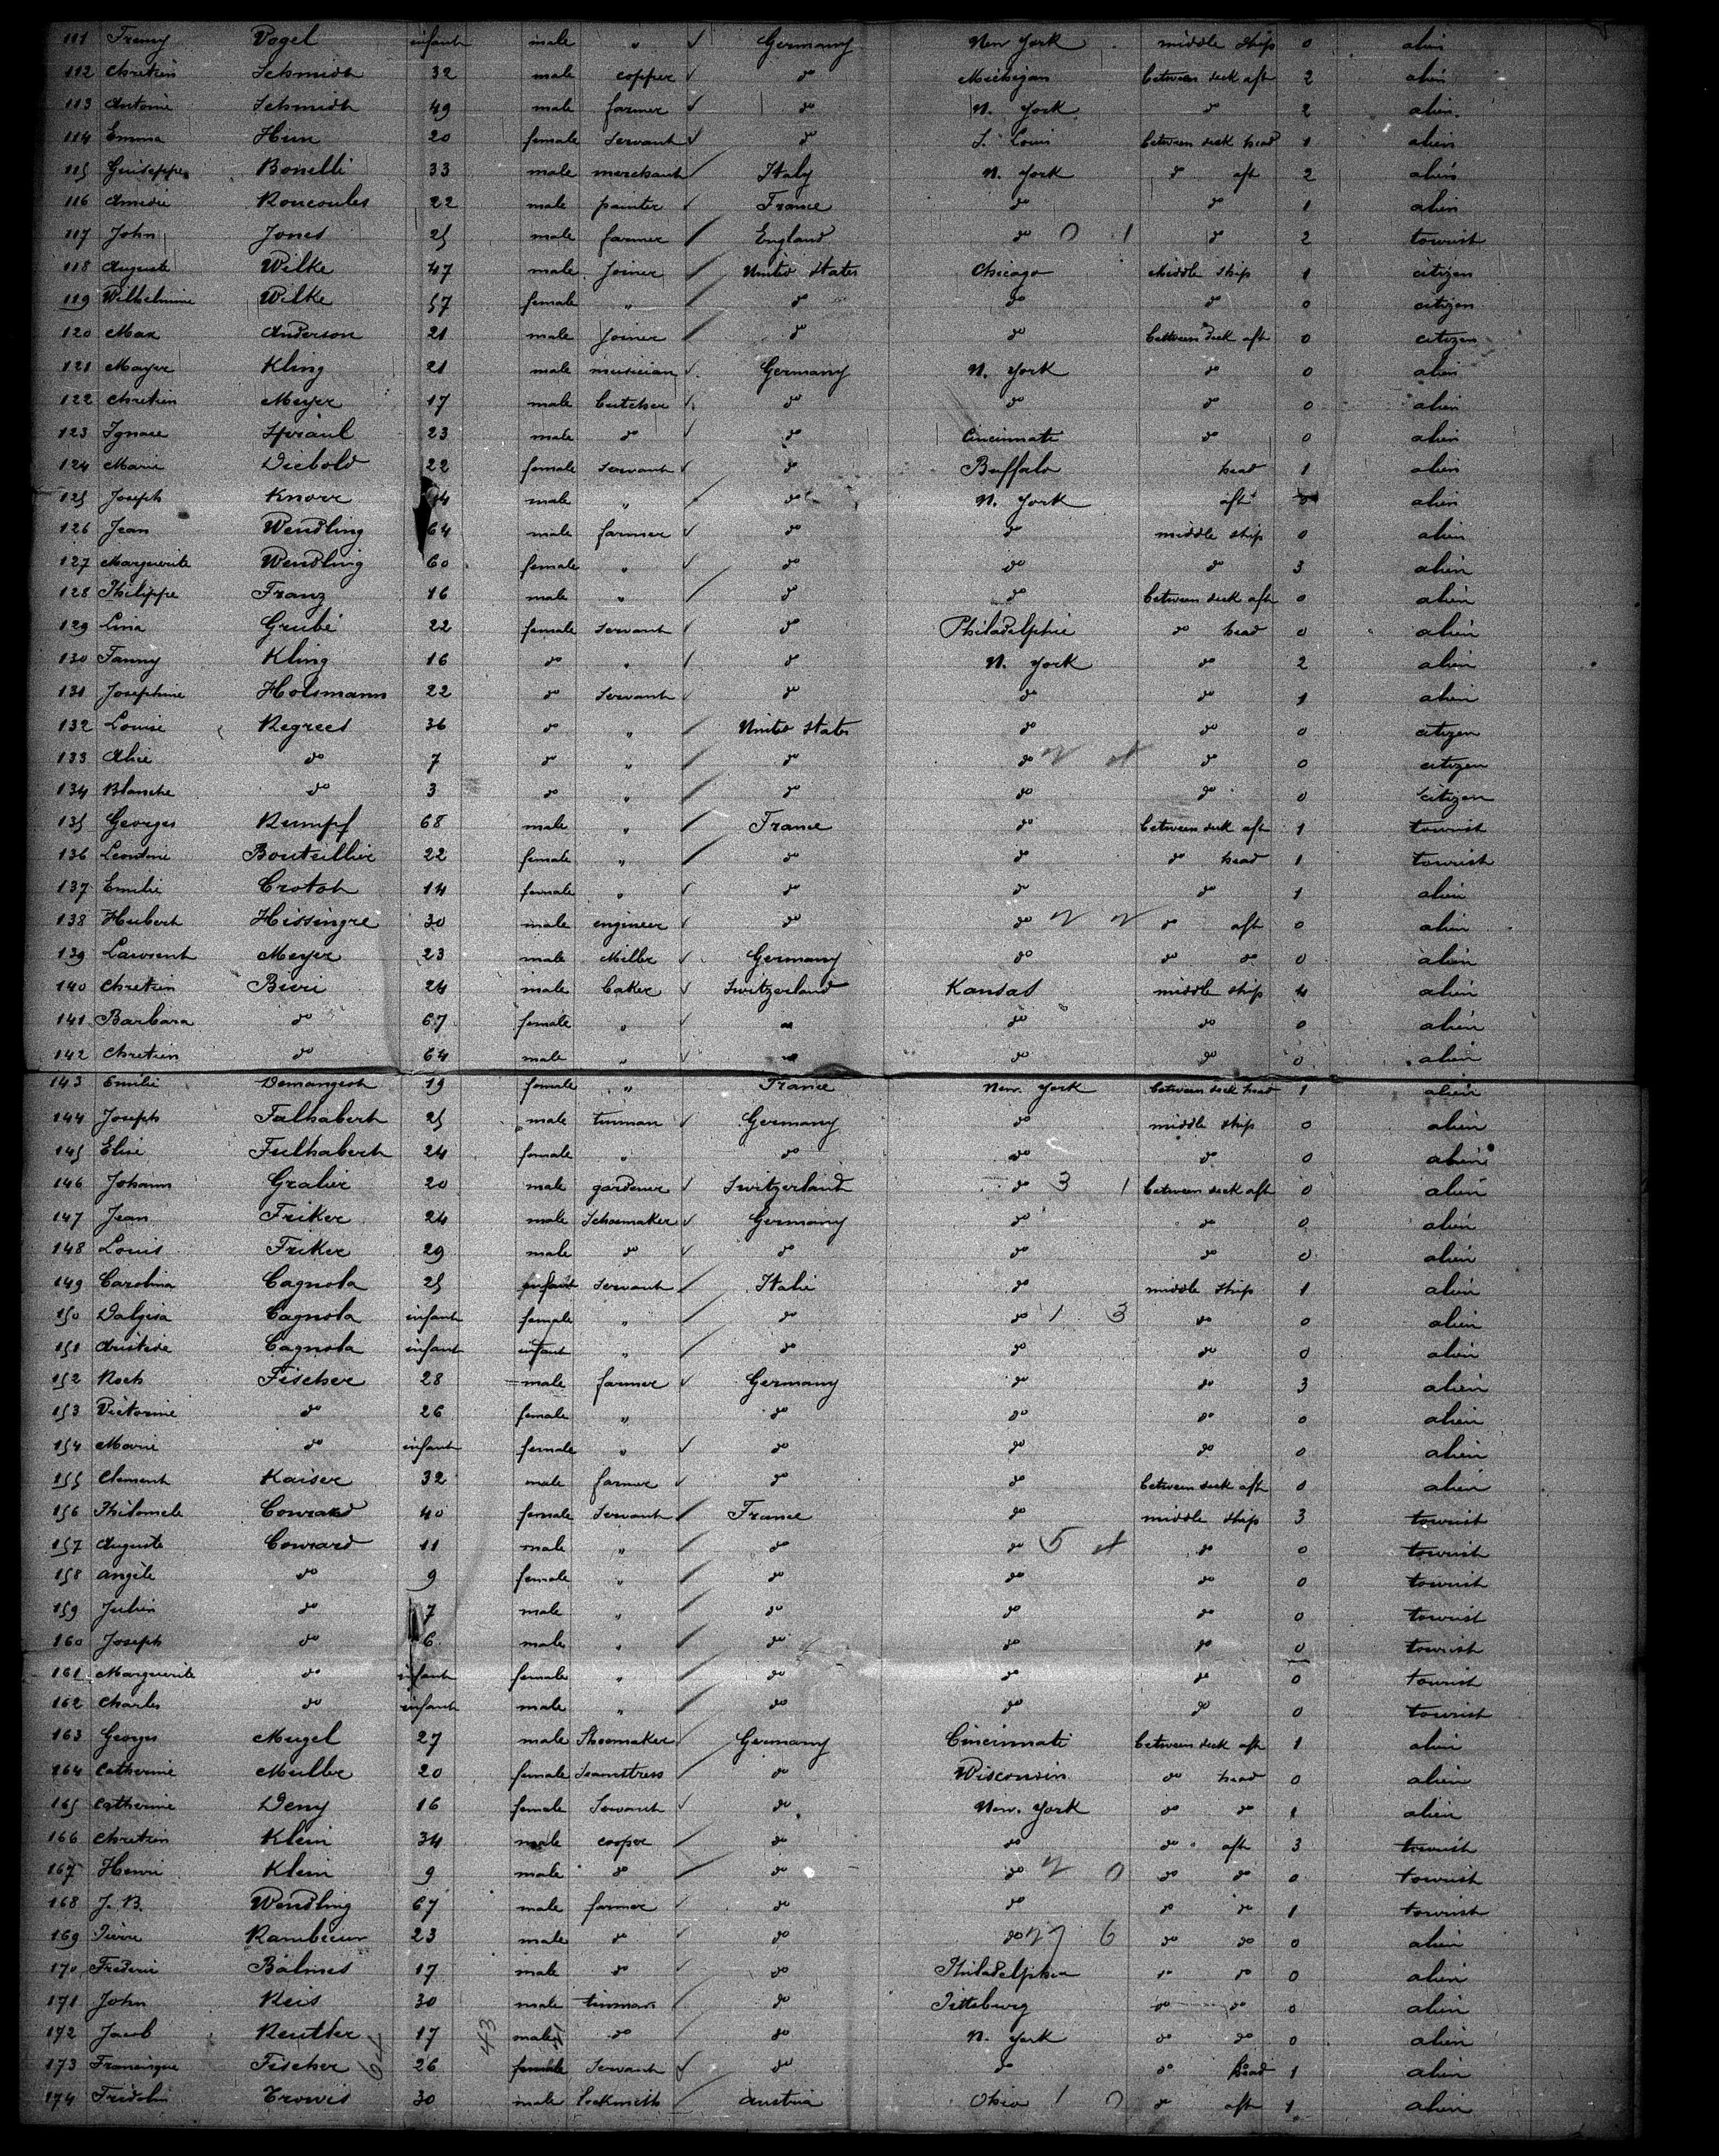 111 Fremy Vogel infant male " ✓ Germany New York middle ship 0 alien
112 Chretien Schmidt 32 male copper ✓ do Michigan between deck aft 2 alien
113 Antoine Schmidt 49 male farmer ✓ do N. York do 2 alien
114 Emma Hun 20 female servant ✓ do S. Louis between deck head 1 alien
115 Guiseppe Bonelli 33 male merchant / Italy N. York do aft 2 alien
116 Amedée Roucoules 22 male painter ✓ France do do 1 alien
117 John Jones 25 male farmer / England do 0 1 do 2 tourist
118 Auguste Wilke 47 male Joiner / United States Chicago Middle ship 1 citizen
119 Wilhelmine Wilke 57 female " / do do do 0 citizen
120 Max Anderson 21 male Joiner / do do between deck aft 0 citizen
121 Mayer Kling 21 male musician ✓ Germany N. York do 0 alien
122 Chretien Meyer 17 male butcher ✓ do do do 0 alien
123 Ignace 23 male do ✓ do Cincinnati do 0 alien
124 Marie Diebold 22 female servant ✓ do Buffalo head 1 alien
125 Joseph Knorr 14 male " do N. York aft alien
126 Jean Wendling 64 male farmer ✓ do do middle ship 0 alien
127 Marguerite Wendling 60 female " ✓ do do do 3 alien
128 Philippe Franz 16 male " / do do between deck aft 0 alien
129 Lina Grubé 22 female servant ✓ do Philadelphie do head 0 alien
130 Fanny Kling 16 do " ✓ do N. York do 2 alien
131 Josephine Holsmann 22 do servant ✓ do do do 1 alien
132 Louise Regrees 36 do " / United States do do 0 citizen
133 Alice do 7 do " / do do do 0 citizen
134 Blanche do 3 do " / do do do 0 citizen
135 Georges Rumpf 68 male " / France do between deck aft 1 tourist
136 Leontine Bouteillier 22 female " / do do do head 1 tourist
137 Emilie Crotoh 14 female " ✓ do do do 1 alien
138 Hubert Hissingre 30 male engineer ✓ do do 2 2 do aft 0 alien
139 Lawrent Meyer 23 male Miller ✓ Germany do do do 0 alien
140 Chretien Bieri 24 male baker ✓ Switzerland Kansas middle ship 4 alien
141 Barbara do 67 female " ✓ do do 0 alien
142 Chretien do 64 male " ✓ do do 0 alien
143 Emilie Demangeot 19 female " France New. York between deck head 1 alien
144 Joseph Falhabert 25 male tinman ✓ Germany do middle ship 0 alien
145 Elise Fulhabert 24 female " do do do 0 alien
146 Johann Gralier 20 male gardener ✓ Switzerland do 3 1 between deck aft 0 alien
147 Jean Friker 24 male Schoemaker ✓ Germany do do 0 alien
148 Louis Friker 29 male do ✓ do do do 0 alien
149 Carolina Cagnola 25 servant / Italie do middle ship 1 alien
150 Dalgisa Cagnola infant female " / do do 1 3 do 0 alien
151 Aristide Cagnola infant infant " / do do do 0 alien
152 Roch Fischer 28 male farmer ✓ Germany do do 3 alien
153 Victorine do 26 female " do do do 0 alien
154 Marie do infant female " ✓ do do do 0 alien
155 Clement Kaiser 32 male farmer ✓ do do between deck aft 0 alien
156 Philomele Conrard 40 female Servant / France do middle ship 3 tourist
157 Auguste Conrard 11 male " / do do 5 do 0 tourist
158 Angèle do 9 female " / do do do 0 tourist
159 Julien do 7 male " / do do do 0 tourist
160 Joseph do 6 male " / do do do 0 tourist
161 Marguerite do infant female " / do do do 0 tourist
162 Charles do infant male " / do do do 0 tourist
163 Georges Mugel 27 male Shoemaker / Germany Cincinnati between deck aft 1 alien
164 Catherine Muller 20 female Seamstress / do Wisconsin do head 0 alien
165 Catherine Deny 16 female Servant ✓ do New. York do do 1 alien
166 Chretien Klein 34 male cooper / do do do aft 3 tourist
167 Henri Klein 9 male do / do do 2 0 do do 0 tourist
168 J. B. Wendling 67 male farmer / do do do do 1 tourist
169 Pierre Rambieur 23 male do ✓ do do 27 6 do do 0 alien
170 Frederic Balmes 17 male do ✓ do Philadelphia do do 0 alien
171 John Reis 30 male tinman / do Pittsburg do do 0 alien
172 Jacob Reutter 17 male do / do N. York do do 0 alien
173 Francisque Fischer 26 female Servant ✓ do do do head 1 alien
64 43
174 Fridolin Trowis 30 male locksmith / Austria Ohio 1 0 do aft 1 alien